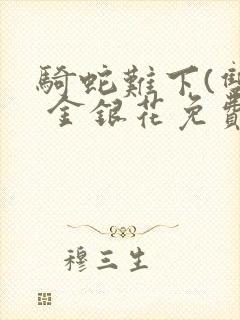 騎蛇難下(雙
金銀花免費
穆三生